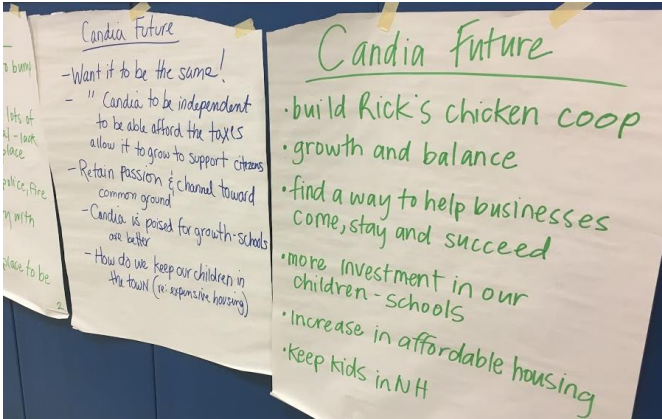 o bump
lots of
al - lack
place
police, Fire
with
place to be
2
Candia Future
- Want it to be the same!
- " Candia to be independent
to be able afford the taxes
allow it to grow to support citizens
- Retain Passion & channel toward
common ground
- Candia is poised for growth - schools
are better
- How do we keep our children in
the town (re: expensive housing)
Candia Future
• build Rick's chicken coop
• growth and balance
• find a way to help businesses
come, stay and succeed
• more investment in our
children - schools
• Increase in affordable housing
• Keep kids in NH